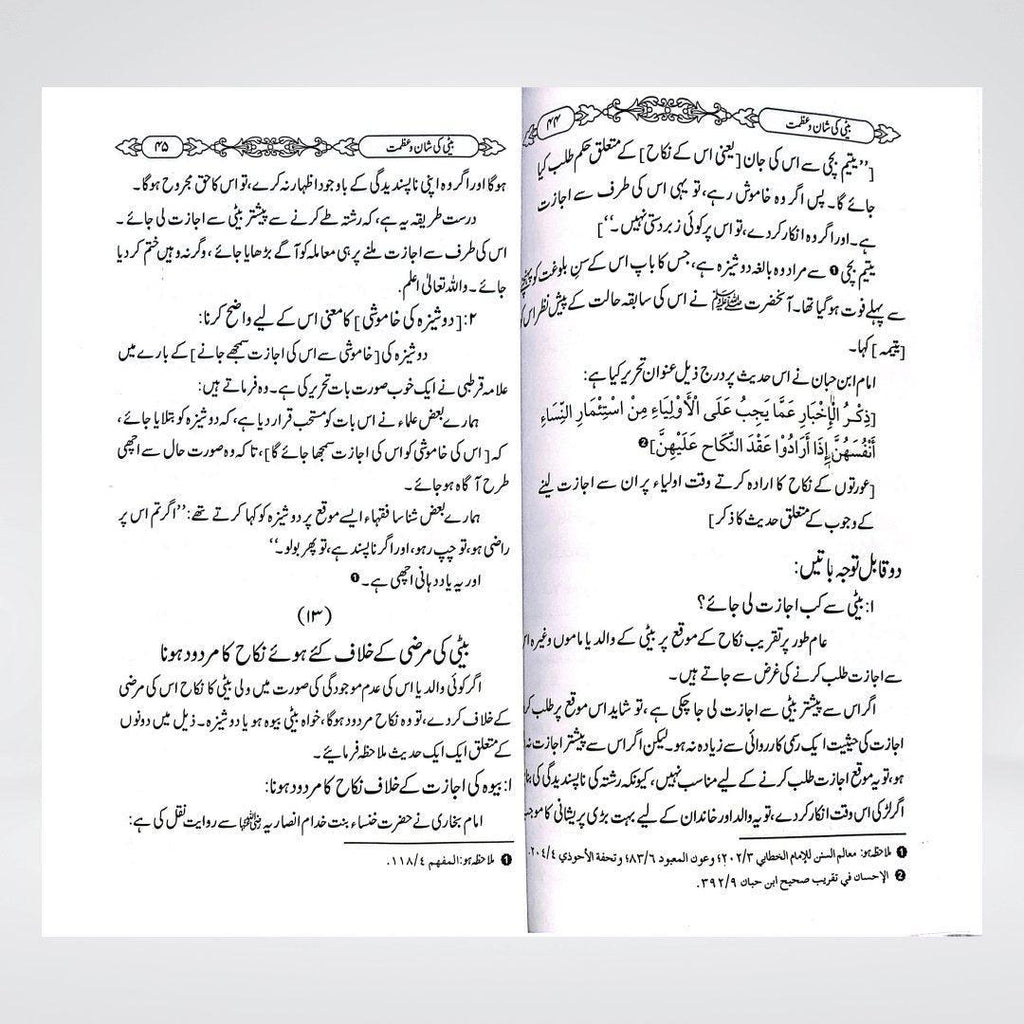 بیٹی کی شان و عظمت
۴۴
[’’یتیم بچی سے اس کی جان [یعنی اس کے نکاح] کے متعلق حکم طلب کیا
جائے گا۔ پس اگر وہ خاموش رہے، تو یہی اس کی طرف سے اجازت
ہے۔ اور اگر وہ انکار کردے، تو اس پر کوئی زبردستی نہیں۔‘‘]
یتیم بچی ❶ سے مراد وہ بالغہ دوشیزہ ہے، جس کا باپ اس کے سنِ بلوغت کو پہنچنے
سے پہلے فوت ہوگیا تھا۔ آنحضرت ﷺ نے اس کی سابقہ حالت کے پیش نظر اس کو
[یتیمہ] کہا۔
امام ابن حبان نے اس حدیث پر درج ذیل عنوان تحریر کیا ہے:
[ذِكْرُ الْإِخْبَارِ عَمَّا يَجِبُ عَلَى الْأَوْلِيَاءِ مِنْ اسْتِئْمَارِ النِّسَاءِ
أَنْفُسَهُنَّ إِذَا أَرَادُوْا عَقْدَ النِّكَاحِ عَلَيْهِنَّ] ❷
[عورتوں کے نکاح کا ارادہ کرتے وقت اولیاء پر ان سے اجازت لینے
کے وجوب کے متعلق حدیث کا ذکر]
دو قابل توجہ باتیں:
۱: بیٹی سے کب اجازت لی جائے؟
عام طور پر تقریب نکاح کے موقع پر بیٹی کے والد یا ماموں وغیرہ
سے اجازت طلب کرنے کی غرض سے جاتے ہیں۔
اگر اس سے پیشتر بیٹی سے اجازت لی جا چکی ہے، تو شاید اس موقع پر طلب
اجازت کی حیثیت ایک رسمی کارروائی سے زیادہ نہ ہو۔ لیکن اگر اس سے پیشتر اجازت نہ
ہو، تو یہ موقع اجازت طلب کرنے کے لیے مناسب نہیں، کیونکہ رشتہ کی ناپسندیدگی کی بنا
اگر لڑکی اس وقت انکار کردے، تو یہ والد اور خاندان کے لیے بہت بڑی پریشانی کا موجب
❶ ملاحظہ ہو: معالم السنن للإمام الخطابي ٢٠٢/٣؛ وعون المعبود ٨٣/٦؛ وتحفة الأحوذي ٢٠٤/٤.
❷ الإحسان في تقريب صحيح ابن حبان ٣٩٢/٩.
بیٹی کی شان و عظمت
۴۵
ہوگا اور اگر وہ اپنی ناپسندیدگی کے باوجود اظہار نہ کرے، تو اس کا حق مجروح ہوگا۔
درست طریقہ یہ ہے، کہ رشتہ طے کرنے سے پیشتر بیٹی سے اجازت لی جائے۔
اس کی طرف سے اجازت ملنے پر ہی معاملہ کو آگے بڑھایا جائے، وگرنہ وہیں ختم کر دیا
جائے۔ واللہ تعالیٰ اعلم.
۲: [دوشیزہ کی خاموشی] کا معنی اس کے لیے واضح کرنا:
دوشیزہ کی [خاموشی سے اس کی اجازت سمجھے جانے] کے بارے میں
علامہ قرطبی نے ایک خوب صورت بات تحریر کی ہے۔ وہ فرماتے ہیں:
ہمارے بعض علماء نے اس بات کو مستحب قرار دیا ہے، کہ دوشیزہ کو بتلایا جائے،
کہ [اس کی خاموشی کو اس کی اجازت سمجھا جائے گا]، تاکہ وہ صورت حال سے اچھی
طرح آگاہ ہو جائے۔
ہمارے بعض شناسا فقہاء ایسے موقع پر دوشیزہ کو کہا کرتے تھے: ’’اگر تم اس پر
راضی ہو، تو چپ رہو، اور اگر ناپسند ہے، تو پھر بولو۔‘‘
اور یہ یاددہانی اچھی ہے۔ ❶
(۱۳)
بیٹی کی مرضی کے خلاف کئے ہوئے نکاح کا مردود ہونا
اگر کوئی والد یا اس کی عدم موجودگی کی صورت میں ولی بیٹی کا نکاح اس کی مرضی
کے خلاف کر دے، تو وہ نکاح مردود ہوگا، خواہ بیٹی بیوہ ہو یا دوشیزہ۔ ذیل میں دونوں
کے متعلق ایک ایک حدیث ملاحظہ فرمائیے۔
۱: بیوہ کی اجازت کے خلاف نکاح کا مردود ہونا:
امام بخاری نے حضرت خنساء بنت خذام انصاریہ رضی اللہ عنہا سے روایت نقل کی ہے:
❶ ملاحظہ ہو: المفهم ١١٨/٤.